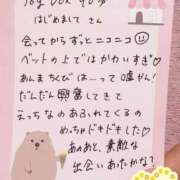 はじめまして さん
会ってからずっとニコニコ
ベットの上ではかわいすぎ♡
あんまちくびは…って嘘がん!
だんだん興奮してきて
えっちなのあふれてくるの
めっちゃドキドキした♡
あのあと、素敵な
出会いあったかな?